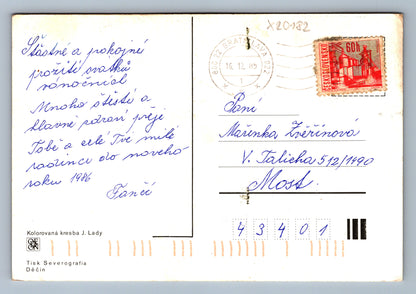 X20182
BRATISLAVA
16.12.85
1
60h
ČESKOSLOVENSKO
Šťastné a pokojné
prožití svátků
vánočních
Mnoho štěstí a
hlavně zdraví přeje
Tobě a celé Tvé milé
rodince do nového
roku 1986
Paní
Mařenka Zvěřinová
V. Talicha 512/1490
Most.
43401
Kolorovaná kresba J. Lady
Tisk Severografia
Děčín